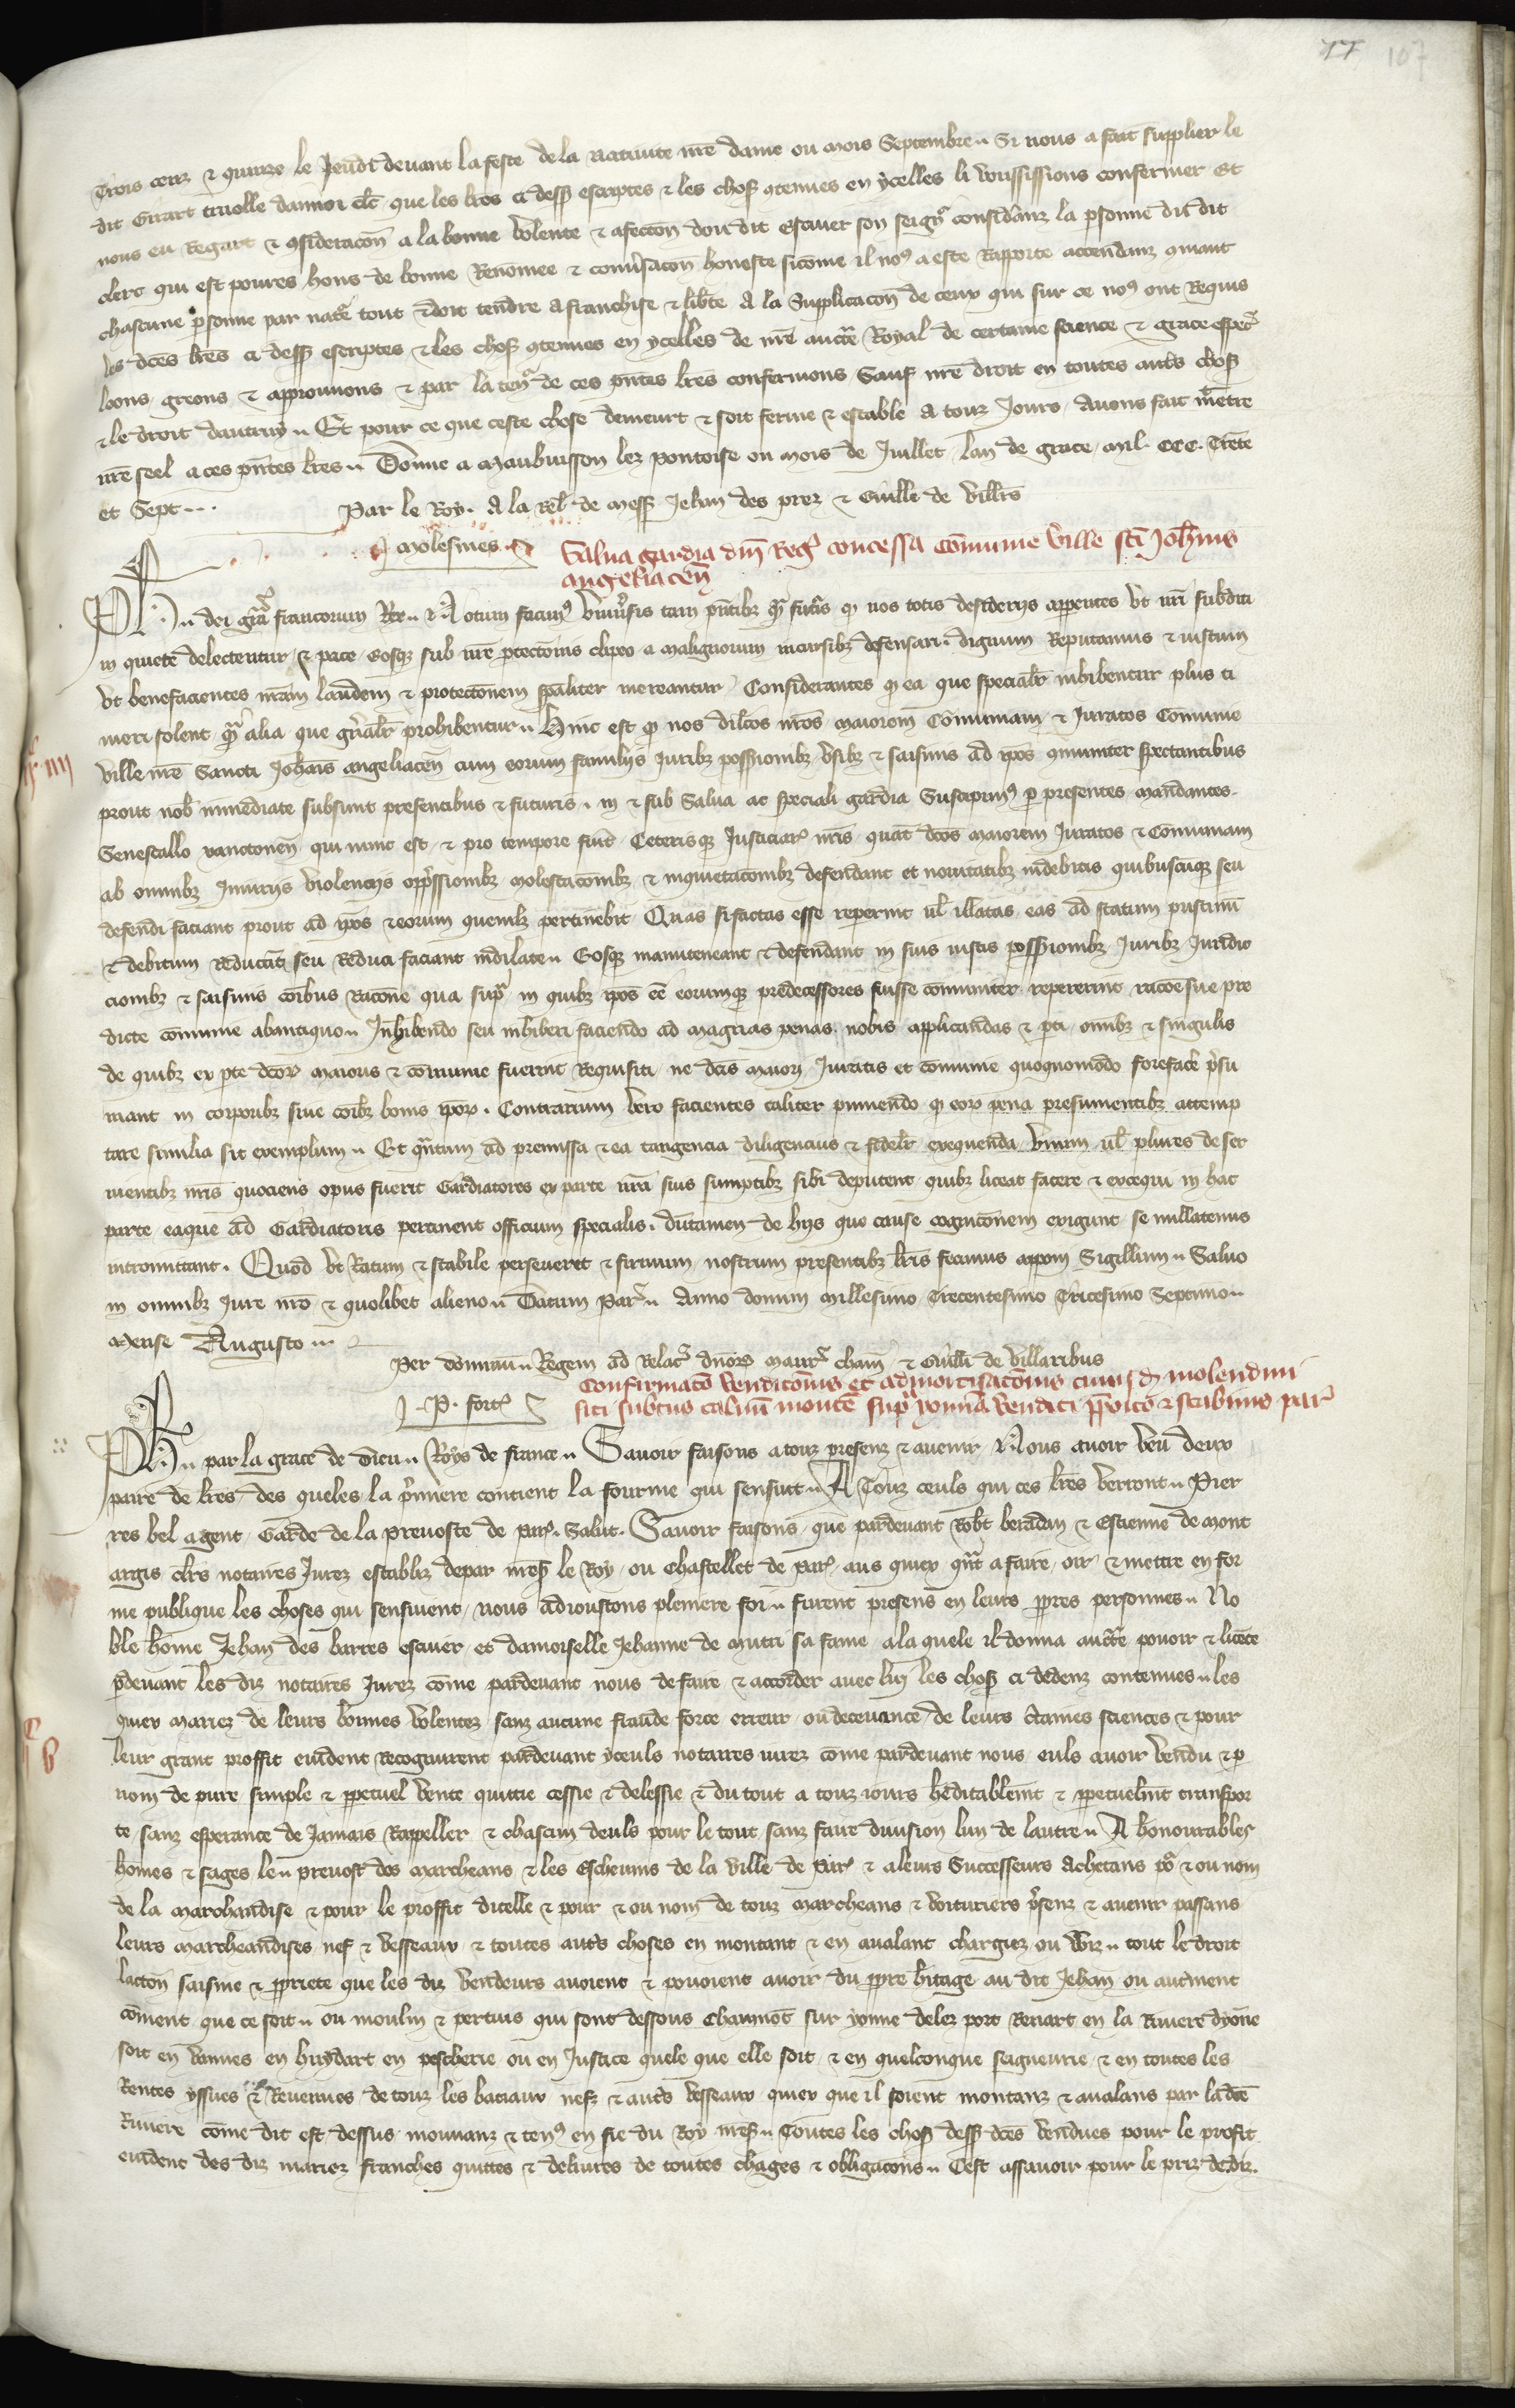 77 107
Trois cenz & quinze le Jeudi devant la feste de la nativite nre dame ou mois Septembre. Si nous a fait supplier le
dit Girart clc que les lres ci dess escriptes & les choses contenues en ycelles li voussissions confermer Et
nous eu Regart & consideracon a la bonne volente & afeccon dou dit escuier son seigr consideranz la personne du dit
clerc qui est poures hons de bonne Renomee & conversacon honeste sicome il nos a este Rapporte attendanz quant
chascune personne par nature tout doit tendre a franchise & liberte A la Supplicacon de ceux qui sur ce nos ont Requis
les dces lres ci dess escriptes & les choses contenues en ycelles de nre auctte Royal de certaine science & grace especr
loons greons & approuvons & par la tenr de ces pntes lres confermons Sauf nre droit en toutes autrs choses
& le droit dautruy. Et pour ce que ceste chose demeurt & soit ferme & estable a touz Jours Avons fait mettre
nre seel a ces pntes lres. Donne a Maubuisson lez Pontoise ou mois de Juillet lan de grace mil CCC. Trente
et Sept...
Par le Roy. A la Rel de mess Jehan des prez & Guille de villrs
Molesmes.
Salva gardia dni Regs concessa Comunie ville sci Johnnis
angeliacen
Ph. dei gra francorum Rex. Notum facims universis tam pntibz qm futurs q nos totis desideriis appetentes ut nri subditi
in quiete delectentur & pace Eosqz sub nre proteccionis clipeo a malignorum incursibz defensari. dignum Reputamus & iustum
ut benefacientes nram laudem & proteccionem spaliter mereantur Considerantes q ea que specialr inhibentur plus ti
meri solent qm alia que gnralr prohibentur. Hinc est q nos dilcos nros maiorem Comuniam & Juratos Comunie
ville nre Sancti Johnis angeliacen cum eorum familiis Juribz possessionibz usibz & saisinis ad ipos communiter spectantibus
prout nob immediate subsunt presentibus & futuris in & sub Salva ac speciali gardia Suscepims per presentes mandantes
Senescallo xanctonen qui nunc est & pro tempore fuit Ceterisqz Justiciar nris quat dcos maiorem Juratos & Comuniam
ab omnibz Iniuriis violenciis oppressionibz molestacionibz & inquietacionibz defendant et novitatibz indebitis quibuscumqz seu
defendi faciant prout ad ipos & eorum quemlz pertinebit Quas si factas esse reperint vl illatas eas ad statum pristinu
& debitum Reducat seu Reduci faciant indilate. Eosqz manuteneant & defendant in suis iustis possessionibz Juribz Juridic
cionibz & saisinis coibus Racone qua supr in quibz ipos ee eorumqz predecessores fuisse comuniter repererint racoe sue pre
dicte comunie ab antiquo. Inhibendo seu inhiberi faciendo ad magnas penas nobis applicandas & pti omibz & singulis
de quibz ex pte dcor maioris & comunie fuerint Requisiti ne dcis maiori Juratis et comunie quoquomodo forefacere presu
mant in corporibz sive coibz bonis ipor. Contrarium vero facientes taliter puniendo q eor pena presumentibz attemp
tare similia sit exemplum. Et qntum ad premissa & ea tangencia diligencius & fidelr exequenda unum vl plures de ser
vientibz nris quociens opus fuerit Gardiatores ex parte nra suis sumptibz sibi deputent quibz liceat facere & exequi in hac
parte eaque ad Gardiatoris pertinent officium specialis. dutamen de hiis que cause cognicionem exigunt se nullatenus
intromittant. Quod ut Ratum & stabile perseveret & firmum nostrum presentibz lris fecimus apponi Sigillum. Salvo
in omnibz Jure nro & quolibet alieno. Datum Pars. Anno domini Millesimo Trecentesimo Tricesimo Septimo.
Mense Augusto...
Per dominu Regem ad Relacr dnor maurs cham & Guilli de villaribus
P. forts
Confirmaco vendicionis et admortisacionis cuiusd molendini
siti subtus calvu monte supr yonna venditi pposito & scabinis par
Ph. par la grace de Dieu Roys de france. Savoir faisons a touz presenz & avenir Nous avoir veu deux
paire de lres des queles la primiere contient la fourme qui sensuit. A Touz ceuls qui ces lres verront. Pier
res bel agent Garde de la prevoste de Pars. Salut. Savoir faisons que pardevant Robt beradan & Estienne de mont
argis clrs notaires Jurez establiz depar nres le Roy ou Chastellet de Pars aus quiex qnt a faire oir & mettre en for
me publique les choses qui sensuient nous adioustons pleniere foi. furent presens en leurs ppres personnes. No
ble home Jehan des barres escuier et damoiselle Jehanne de mutri sa fame a la quele il donna auctte povoir & licece
pdevant les diz notaires Jurez come pardevant nous de faire & accorder avec luy les choses ci dedenz contenues. les
quiex mariez de leurs bonnes volentez sanz aucune fraude force erreur ou decevance de leurs ctaines sciences & pour
leur grant proffit evident Recognurent pardevant yceuls notaires iurez come pardevant nous euls avoir vendu & p
nom de pure simple & ppetuel vente quitte cessie & delessie & du tout a touz iours heditablemt & ppetuelmt transpor
te sanz esperance de Jamais Rappeller & chascun deuls pour le tout sanz faire division lun de lautre. A honourables
homes & sages le prevost des Marcheans & les Eschevins de la ville de Pars & a leurs Successeurs Achetans por & ou nom
de la marchandise & pour le proffit dicelle & pour & ou nom de touz marcheans & voituriers presenz & avenir passans
leurs marcheandises nef & vesseaux & toutes autrs choses en montant & en avalant chargiez ou vuiz. tout le droit
laction saisine & ppriete que les diz vendeurs avoient & povoient avoir du ppre hitage au dit Jehan ou autrment
coment que ce soit. ou moulin & pertuis qui sont dessous Chaumot sur yonne delez port Renart en la Riviere dyone
soit en vannes en huydart en pescherie ou en Justice quele que elle soit & en quelconque seigneurie & en toutes les
Rentes yssues & Revenues de touz les batiaux nefz & autrs vesseaux quiex que il soient montanz & avalans par la dce
Riviere come dit est dessus mouvanz & tens en fie du Roy nres. Toutes les choses dess dces vendues pour le profit
evident des diz mariez franches quittes & delivres de toutes chages & obligacons. Cest assavoir pour le priz de diz.